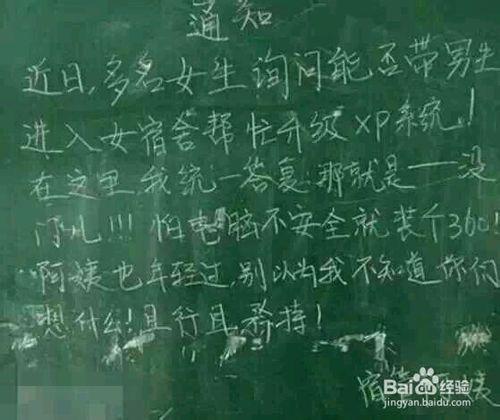 通知
近日,多名女生询问能否带男生
进入女宿舍帮忙升级XP系统!
在这里我统一答复:那就是——没
门儿!!!怕电脑不安全就装个360!
啊姨也年轻过,别以为我不知道你们
想什么!且行且矜持!
宿管
Bai 百度经验
jingyan.baidu.com